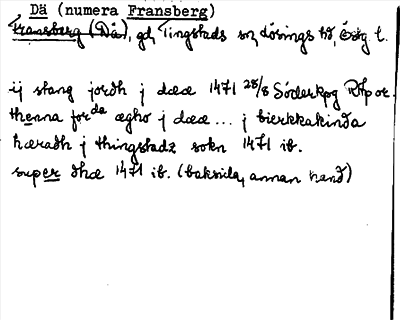 Dä (numera Fransberg)
Fransberg (Dä), gd, Tingstads sn, Lösings hd, Ög l.
ij stang jordh j dææ 1471 28/8 Söderkpg RAp or.
thenna forda ægho j dææ ... j bierkkakinda
hæradh j thingstadz sokn 1471 ib.
super dhæ 1471 ib. (baksida, annan hand)